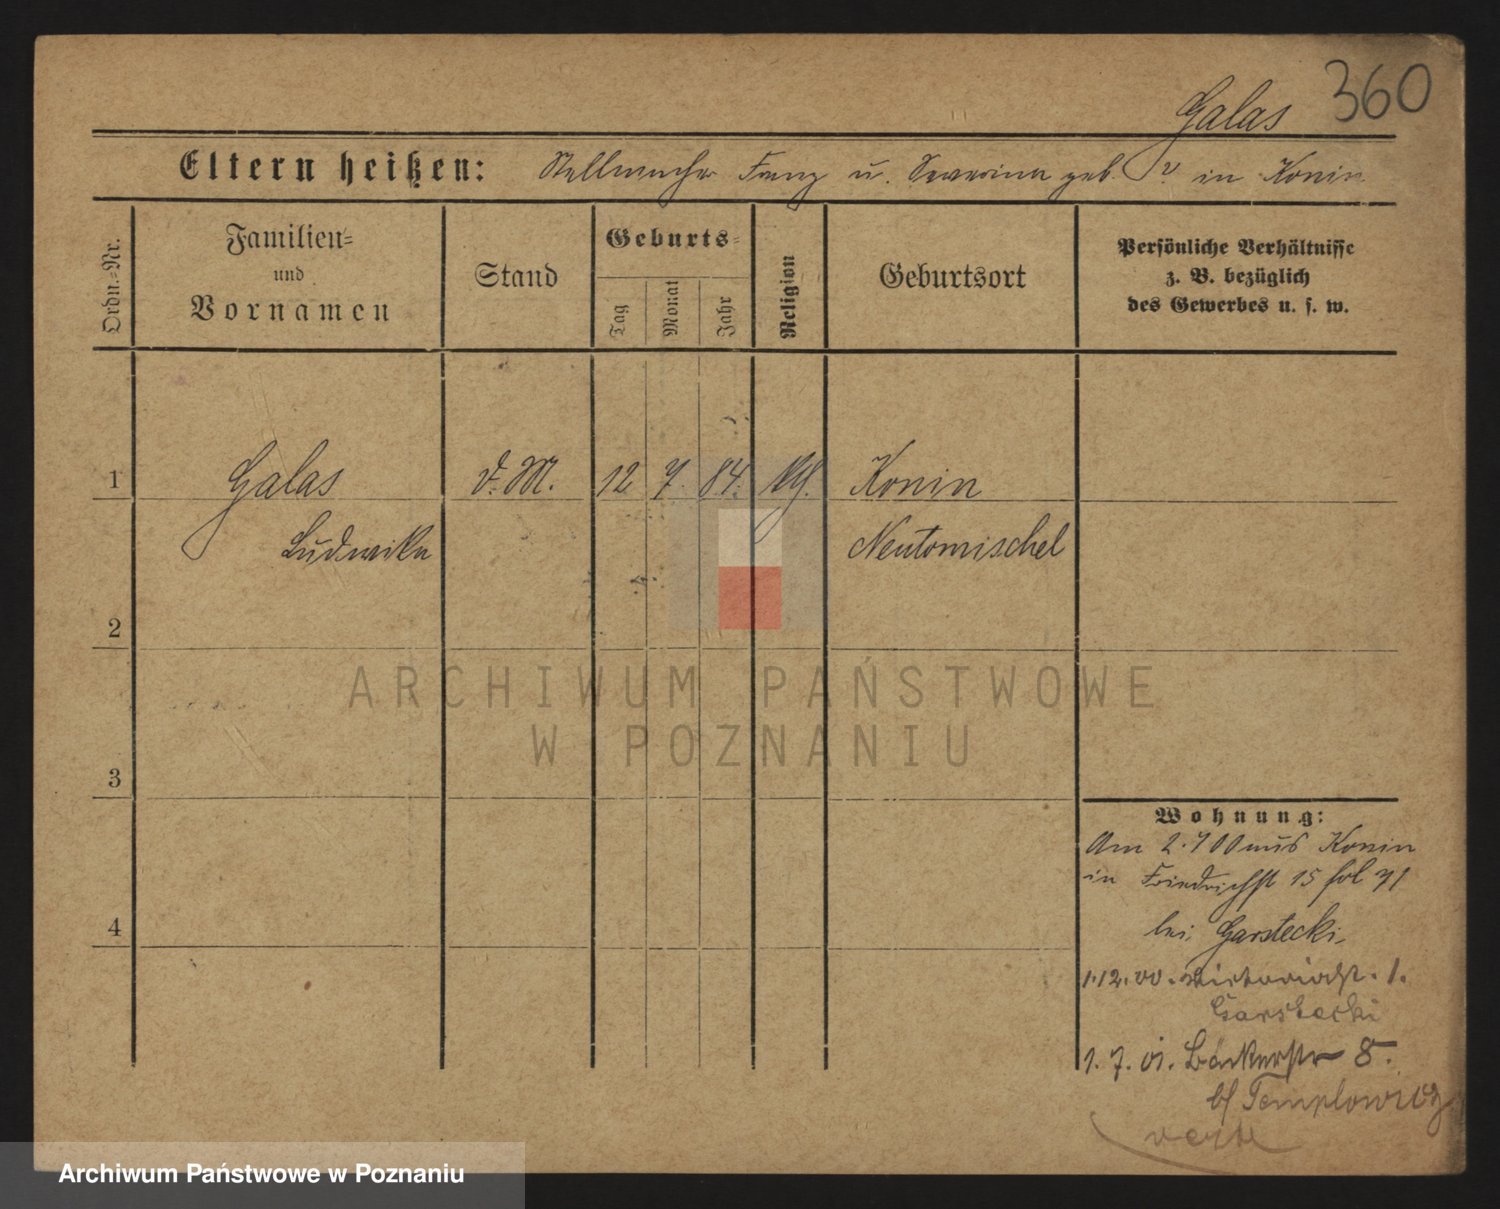 360
Galas
Eltern heißen: Stellmacher Franz u. Severina geb. ? in Konin
Ordn.-Nr.
Familien-
und
Vornamen
Stand
Geburts-
Tag
Monat
Jahr
Religion
Geburtsort
Persönliche Verhältnisse
z. B. bezüglich
des Gewerbes u. s. w.
1 Galas d. M. 12 7. 84. Konin
Ludwika Neutomischel
2
3
4
ARCHIWUM PAŃSTWOWE
W POZNANIU
Wohnung:
Am 2.7 00 aus Konin
in Friedrichst 15 fol 71
bei Garstecki
1.12.00. Victoriast. 1.
Garstecki
1.7.01. Bäckerstr 8.
b/ Templowicz
Archiwum Państwowe w Poznaniu